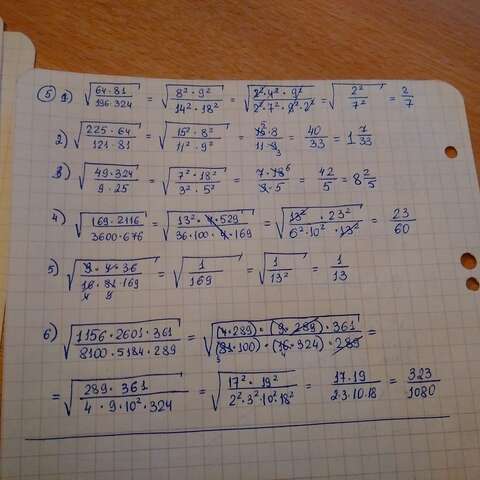 5) 1) √(64·81 / 196·324) = √(8²·9² / 14²·18²) = √(2²·4²·9² / 2²·7²·9²·2²) = √(2² / 7²) = 2/7
2) √(225·64 / 121·81) = √(15²·8² / 11²·9²) = 15·8 / 11·9 = 40/33 = 1 7/33
3) √(49·324 / 9·25) = √(7²·18² / 3²·5²) = 7·18 / 3·5 = 42/5 = 8 2/5
4) √(169·2116 / 3600·676) = √(13²·4·529 / 36·100·4·169) = √(13²·23² / 6²·10²·13²) = 23/60
5) √(9·4·36 / 16·81·169) = √(1/169) = √(1/13²) = 1/13
6) √(1156·2601·361 / 8100·5184·289) = √((4·289)·(9·289)·361 / (81·100)·(16·324)·289) =
= √(289·361 / 4·9·10²·324) = √(17²·19² / 2²·3²·10²·18²) = 17·19 / 2·3·10·18 = 323/1080